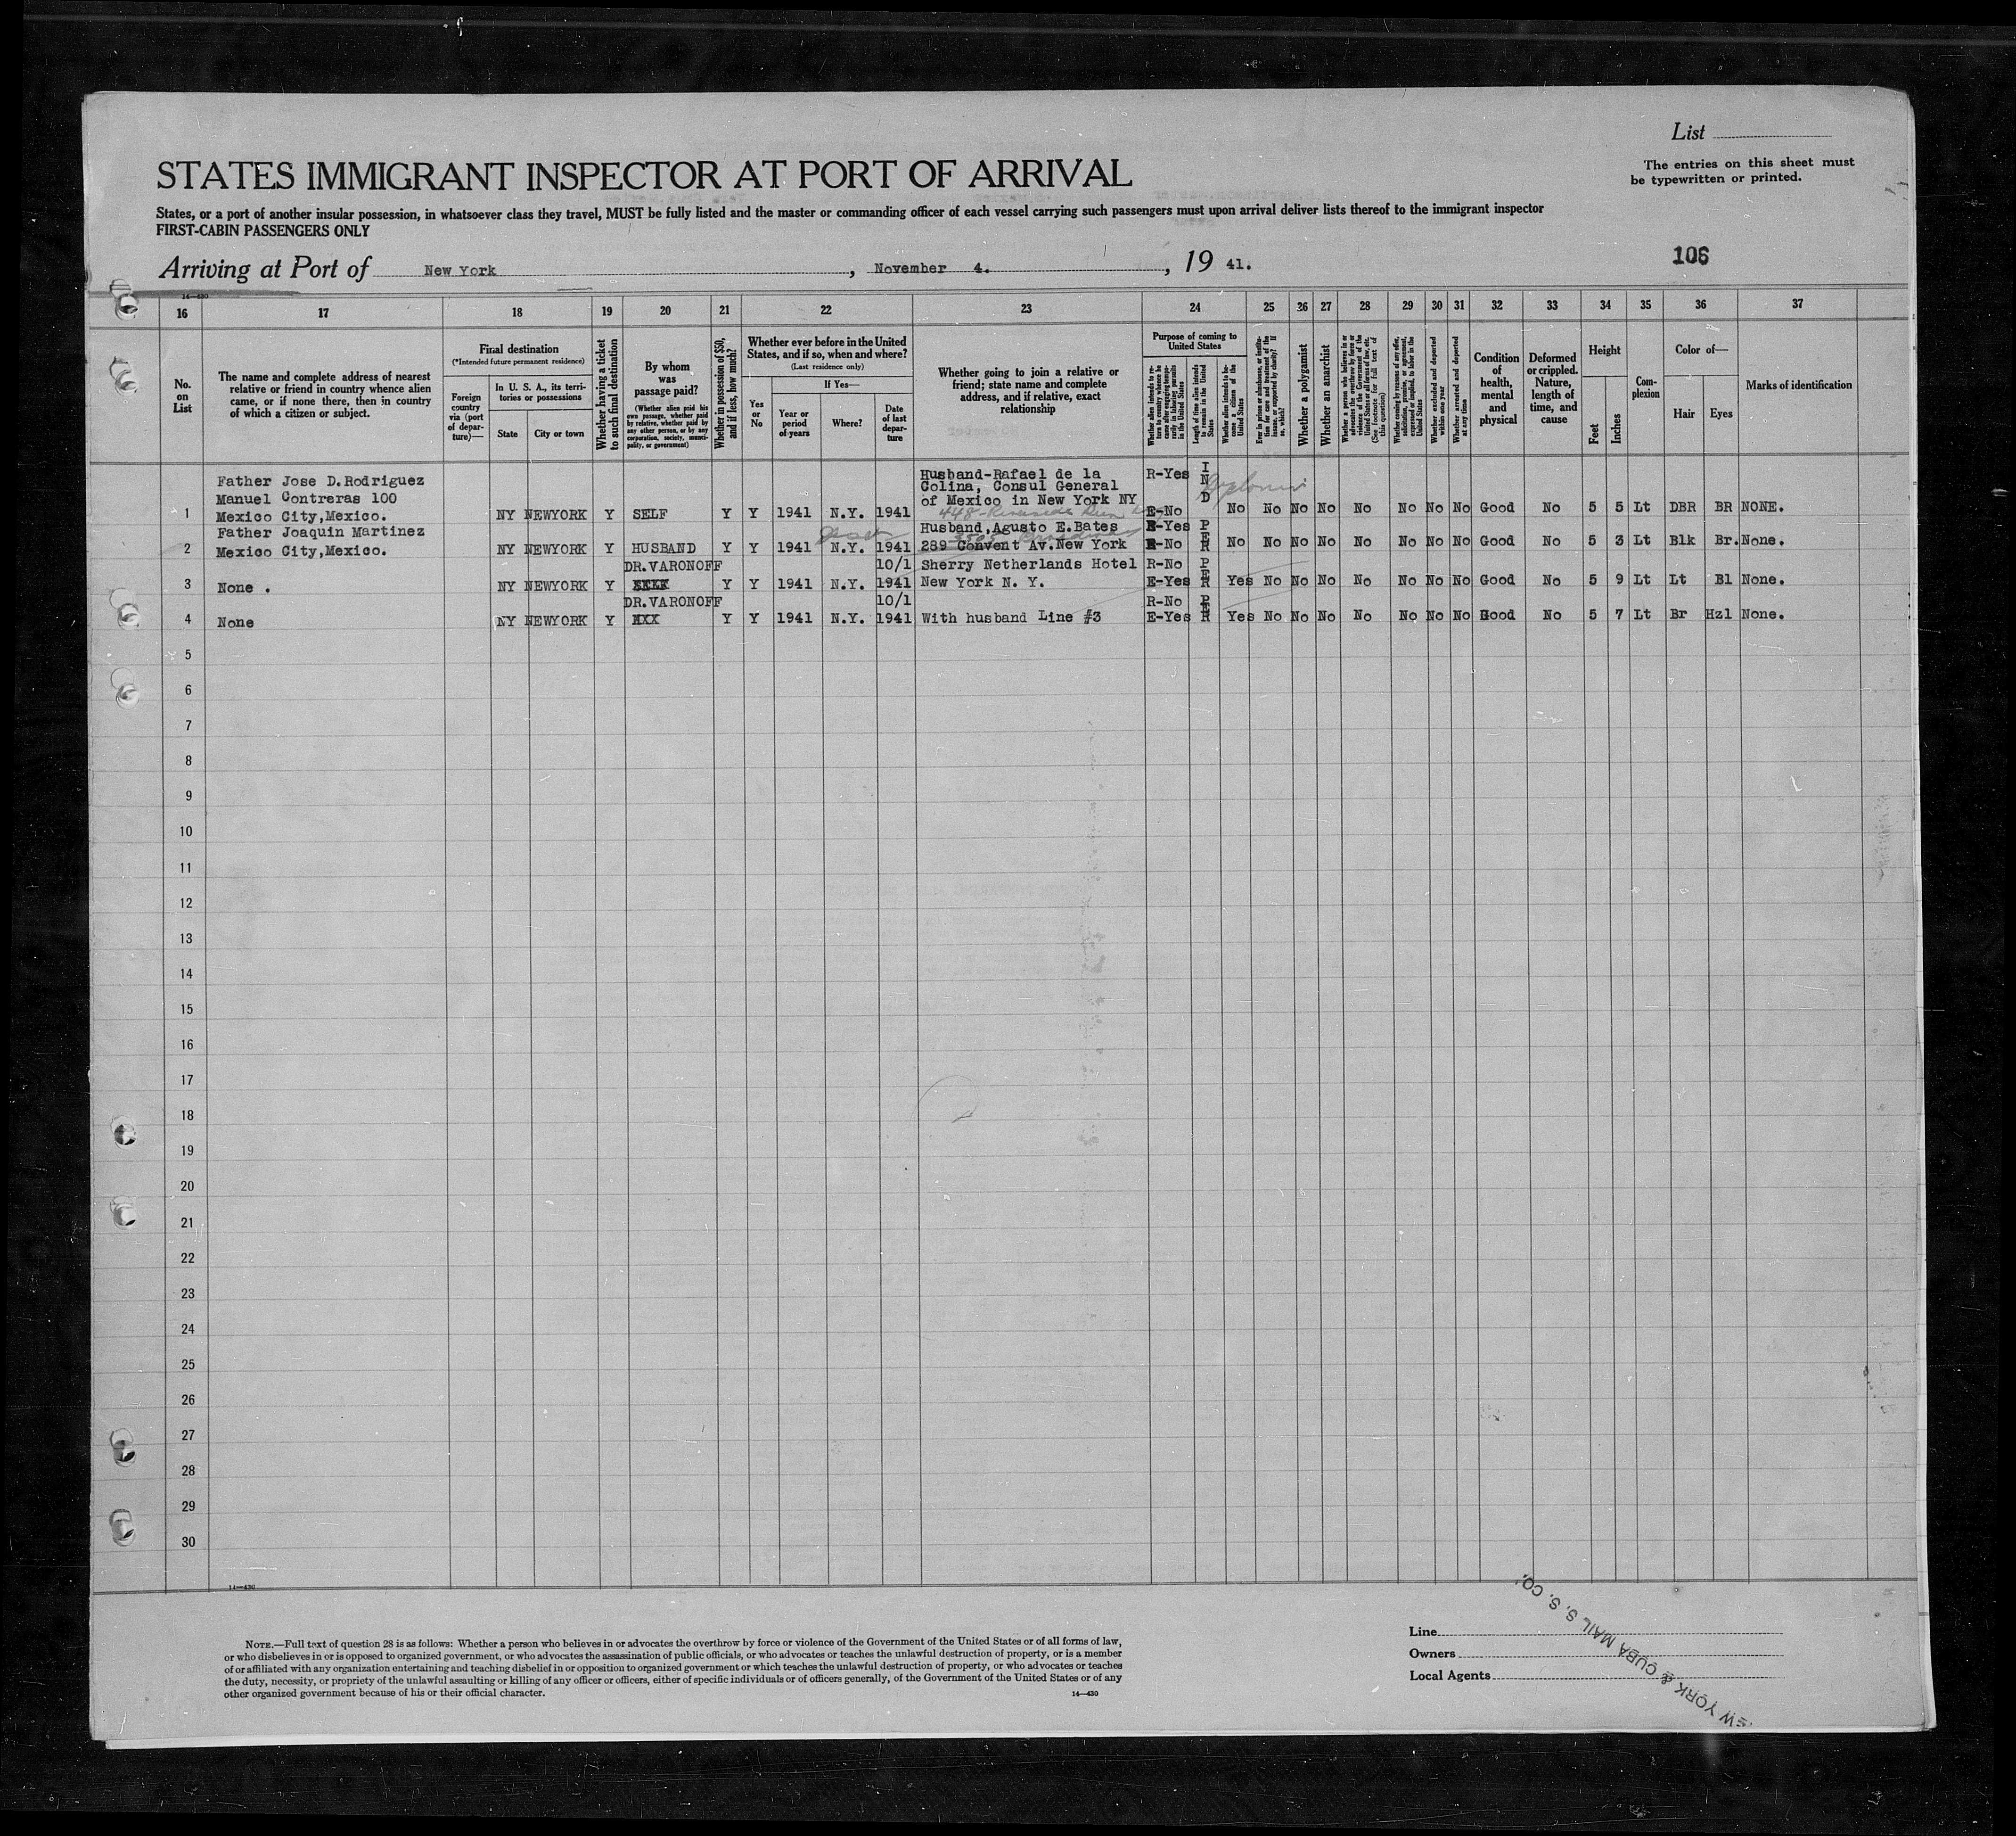 List
The entries on this sheet must
be typewritten or printed.
STATES IMMIGRANT INSPECTOR AT PORT OF ARRIVAL
States, or a port of another insular possession, in whatsoever class they travel, MUST be fully listed and the master or commanding officer of each vessel carrying such passengers must upon arrival deliver lists thereof to the immigrant inspector
FIRST-CABIN PASSENGERS ONLY
106
Arriving at Port of New York, November 4., 19 41.
14—430
16 17 18 19 20 21 22 23 24 25 26 27 28 29 30 31 32 33 34 35 36 37
No. on List
The name and complete address of nearest relative or friend in country whence alien came, or if none there, then in country of which a citizen or subject.
Final destination
(*Intended future permanent residence)
Foreign country via (port of departure)—
In U. S. A., its territories or possessions
State
City or town
Whether having a ticket to such final destination
By whom was passage paid?
(Whether alien paid his own passage, whether paid by relative, whether paid by any other person, or by any corporation, society, municipality, or government)
Whether in possession of $50, and if less, how much?
Whether ever before in the United States, and if so, when and where?
(Last residence only)
Yes or No
If Yes—
Year or period of years
Where?
Date of last departure
Whether going to join a relative or friend; state name and complete address, and if relative, exact relationship
Purpose of coming to United States
Whether alien intends to return to country whence he came after engaging temporarily in laboring pursuits in the United States
Length of time alien intends to remain in the United States
Whether alien intends to become a citizen of the United States
Ever in prison or almshouse, or institution for care and treatment of the insane, or supported by charity? If so, which?
Whether a polygamist
Whether an anarchist
Whether a person who believes in or advocates the overthrow by force or violence of the Government of the United States or all forms of law, etc. (See footnote for full text of this question)
Whether coming by reasons of any offer, solicitation, promise, or agreement, expressed or implied, to labor in the United States
Whether excluded and deported within one year
Whether arrested and deported at any time
Condition of health, mental and physical
Deformed or crippled. Nature, length of time, and cause
Height
Feet
Inches
Complexion
Color of—
Hair
Eyes
Marks of identification
Father Jose D.Rodriguez
Manuel Contreras 100
1 Mexico City,Mexico. NY NEWYORK Y SELF Y Y 1941 N.Y. 1941
Husband-Rafael de la
Colina, Consul General
of Mexico in New York NY
448- Riverside
R-Yes IND
E-No No No No No No No No No Good No 5 5 Lt DBR BR NONE.
Father Joaquin Martinez
2 Mexico City,Mexico. NY NEWYORK Y HUSBAND Y Y 1941 N.Y. 1941
Husband,Agusto E.Bates
289 Convent Av.New York
R-Yes
E-No No No No No No No No No Good No 5 3 Lt Blk Br. None.
DR.VARONOFF 10/1 Sherry Netherlands Hotel R-No
3 None . NY NEWYORK Y XXXX Y Y 1941 N.Y. 1941 New York N. Y. E-Yes Yes No No No No No No No Good No 5 9 Lt Lt Bl None.
DR.VARONOFF 10/1 R-No
4 None NY NEWYORK Y XXX Y Y 1941 N.Y. 1941 With husband Line #3 E-Yes Yes No No No No No No No Good No 5 7 Lt Br Hzl None.
5
6
7
8
9
10
11
12
13
14
15
16
17
18
19
20
21
22
23
24
25
26
27
28
29
30
14—430
NOTE.—Full text of question 28 is as follows: Whether a person who believes in or advocates the overthrow by force or violence of the Government of the United States or of all forms of law,
or who disbelieves in or is opposed to organized government, or who advocates the assassination of public officials, or who advocates or teaches the unlawful destruction of property, or is a member
of or affiliated with any organization entertaining and teaching disbelief in or opposition to organized government or which teaches the unlawful destruction of property, or who advocates or teaches
the duty, necessity, or propriety of the unlawful assaulting or killing of any officer or officers, either of specific individuals or of officers generally, of the Government of the United States or of any
other organized government because of his or their official character.
14—430
Line
Owners
Local Agents
EW YORK & CUBA MAIL S. S. CO.